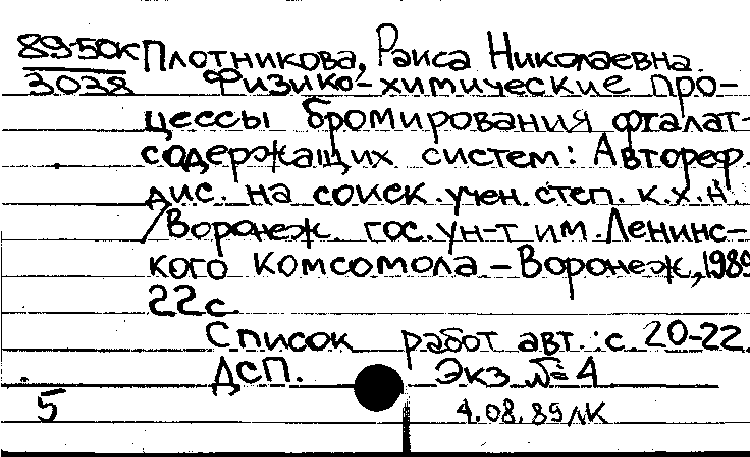 89-50К Плотникова, Раиса Николаевна.
3038 Физико-химические про-
цессы бромирования фталат-
содержащих систем: Автореф.
дис. на соиск. учен. степ. к.х.н.
/Воронеж. гос. ун-т им. Ленинс-
кого комсомола – Воронеж, 1989
22 с.
Список работ авт.: с. 20-22.
ДСП. Экз №4
5 4.08.89 ЛК